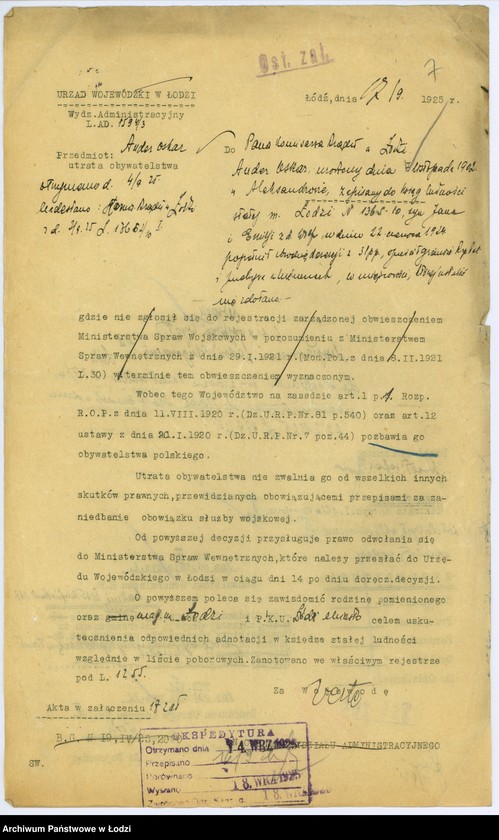 Ost. zał.
7
URZĄD WOJEWÓDZKI W ŁODZI
Wydz. Administracyjny
L.AD.
Łódź, dnia 17/9. 1925 r.
Przedmiot: Ander Oskar
utrata obywatelstwa
Do Pana Komisarza Rządu w Łodzi
Ander Oskar, urodzony dnia listopada 1902
w Aleksandrowie, zapisany do ksiąg ludności
stałej m. Łodzi N syn Jana
i Emilji z d. w dniu 22 1924
z 31 pp, opuścił granice Rzplit
i w miejscowości,
nie zdołano -
gdzie nie zgłosił się do rejestracji zarządzonej obwieszczeniem
Ministerstwa Spraw Wojskowych w porozumieniu z Ministerstwem
Spraw Wewnętrznych z dnia 29.I.1921 r. (Mon.Pol. z dnia 8.II.1921
L.30) w terminie tem obwieszczeniem wyznaczonym.
Wobec tego Województwo na zasadzie art.1 p. Rozp.
R.O.P. z dnia 11.VIII.1920 r.(Dz.U.R.P.Nr.81 p.540) oraz art.12
ustawy z dnia 20.I.1920 r.(Dz.U.R.P.Nr.7 poz.44) pozbawia go
obywatelstwa polskiego.
Utrata obywatelstwa nie zwalnia go od wszelkich innych
skutków prawnych, przewidzianych obowiązującemi przepisami za za-
niedbanie obowiązku służby wojskowej.
Od powyższej decyzji przysługuje prawo odwołania się
do Ministerstwa Spraw Wewnetrznych, które należy przesłać do Urzę-
du Wojewódzkiego w Łodzi w ciągu dni 14 po dniu doręcz.decyzji.
O powyższem poleca się zawiadomić rodzinę pomienionego
oraz gminę mag. m. Łodzi i P.K.U. Łódź miasto celem usku-
tecznienia odpowiednich adnotacji w księdze stałej ludności
względnie w liście poborowych. Zanotowano we właściwym rejestrze
pod L. 1255.
Za wojewodę
Akta w załączeniu
EKSPEDYTURA
Otrzymano dnia 14 WRZ 1925
Przepisano
Porównano
Wysłano 18. WRZ. 1925
ADMINISTRACYJNEGO
SW.
Archiwum Państwowe w Łodzi